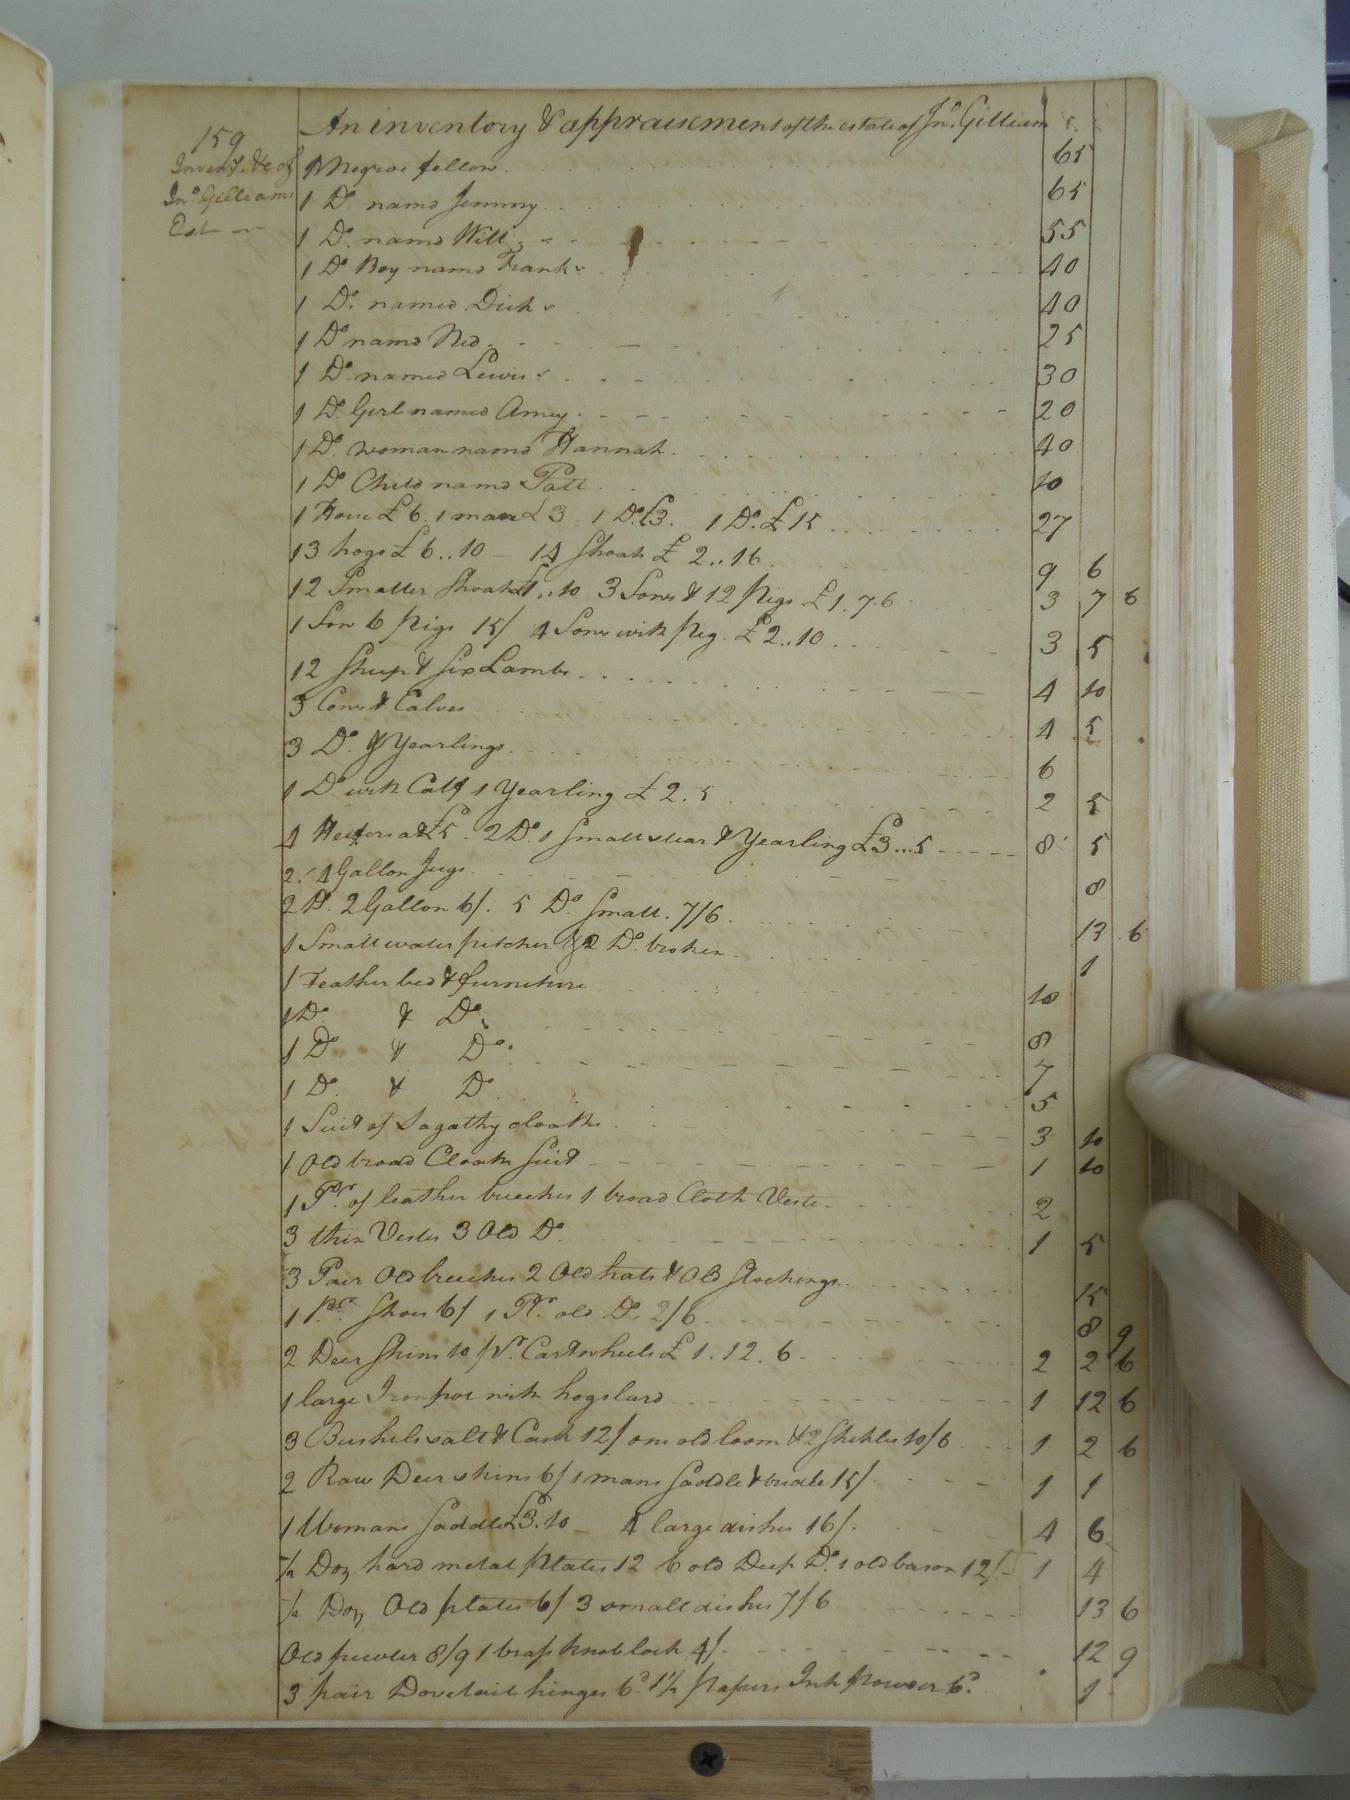 159
Invent. &c of
Jno. Gilliams
Est
An inventory & appraisement of the estate of Jno. Gilliam
1 Negroe fellow 65
1 Do. namd Jemmy 65
1 Do. namd Will 55
1 Do Boy namd Frank 40
1 Do. named Dick 40
1 Do namd Ned 25
1 Do. named Lewis 30
1 Do. Girl named Amey 20
1 Do. woman namd Hannah 40
1 Do Child namd Patt 10
1 Horse £6. 1 mare £3 1 Do. £3. 1 Do. £15 27
13 hogs £6..10 14 Shoats £2..16 9 6
12 Smaller Shoats £1..10 3 Sows & 12 Pigs £1.7.6 3 7 6
1 Sow 6 Pigs 15/ 4 Sows with Pig. £2..10 3 5
12 Sheep & Six Lambs 4 10
3 Cows & Calves 4 5
3 Do. & Yearlings 6
1 Do. with Calf 1 Yearling £2.5 2 5
4 Heifers at £5 2 Do. 1 Small stear & Yearling £3...5 8 5
2. 4 Gallon Jugs 8
2 Do. 2 Gallon 6/. 5 Do. Small. 7/6. 13 6
1 Small water pitcher & 2 Do. broken 1
1 Feather bed & furneture 10
1 Do. & Do. 8
1 Do & Do. 7
1 Do. & Do 5
1 Suit of Sagathy cloaths 3 10
1 Old broad Cloath Suit 1 10
1 Pr. of leather breeches 1 broad Cloth Veste. 2
3 thin Vestes 3 Old Do. 1 5
3 Pair Old breeches 2 Old hats & Old Stockings 15
1 Pr. Shoes 6/ 1 Pr. old Do. 2/6 8 9
2 Deer Skins 10 Pr. Cartwheels £1.12.6 2 2 6
1 large Iron pot with hogslard 1 12 6
3 Bushels salt & Cask 12/ one old loom & 2 Shekles 10/6 1 2 6
2 Raw Deer skins 6/ 1 mans Saddle & bridle 15/. 1 1
1 Womans Saddle £3.10 4 large dishes 16/. 4 6
½ Doz hard metal Plates 12 6 old Deep Do. 1 old bason 12/ 1 4
½ Doz Old plates 6/ 3 small dishes 7/6 13 6
Old pewter 8/9 1 brass knob lock 4/. 12 9
3 pair Dovetail hinges 6d. 1½ Papers Ink Powder 6d. 1